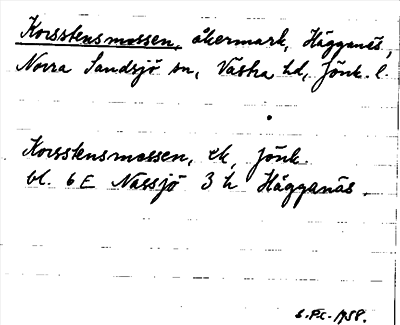 Korsstensmossen, åkermark, Hägganäs,
Norra Sandsjö sn, Västra hd, Jönk. l.
Korsstensmossen, ek, Jönk.
bl. 6 E Nässjö 3 h Hägganäs.